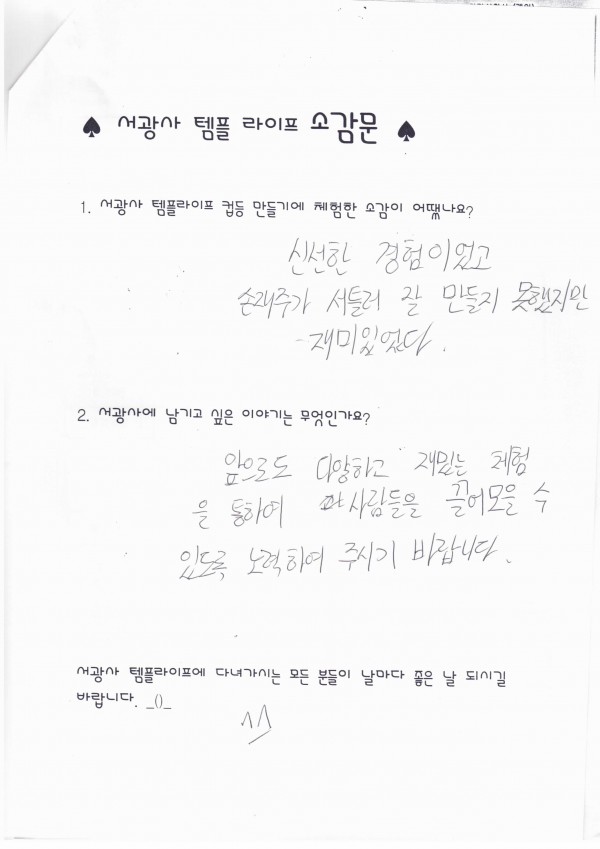 ♠ 서광사 템플 라이프 소감문 ♠
1. 서광사 템플라이프 컵등 만들기에 체험한 소감이 어땠나요?
신선한 경험이었고
손재주가 서틀러 잘 만들지 못했지만
재미있었다.
2. 서광사에 남기고 싶은 이야기는 무엇인가요?
앞으로도 다양하고 재밌는 체험
을 통하여 사람들을 끌어모을 수
있도록 노력하여 주시기 바랍니다.
서광사 템플라이프에 다녀가시는 모든 분들이 날마다 좋은 날 되시길
바랍니다. _()_
^^